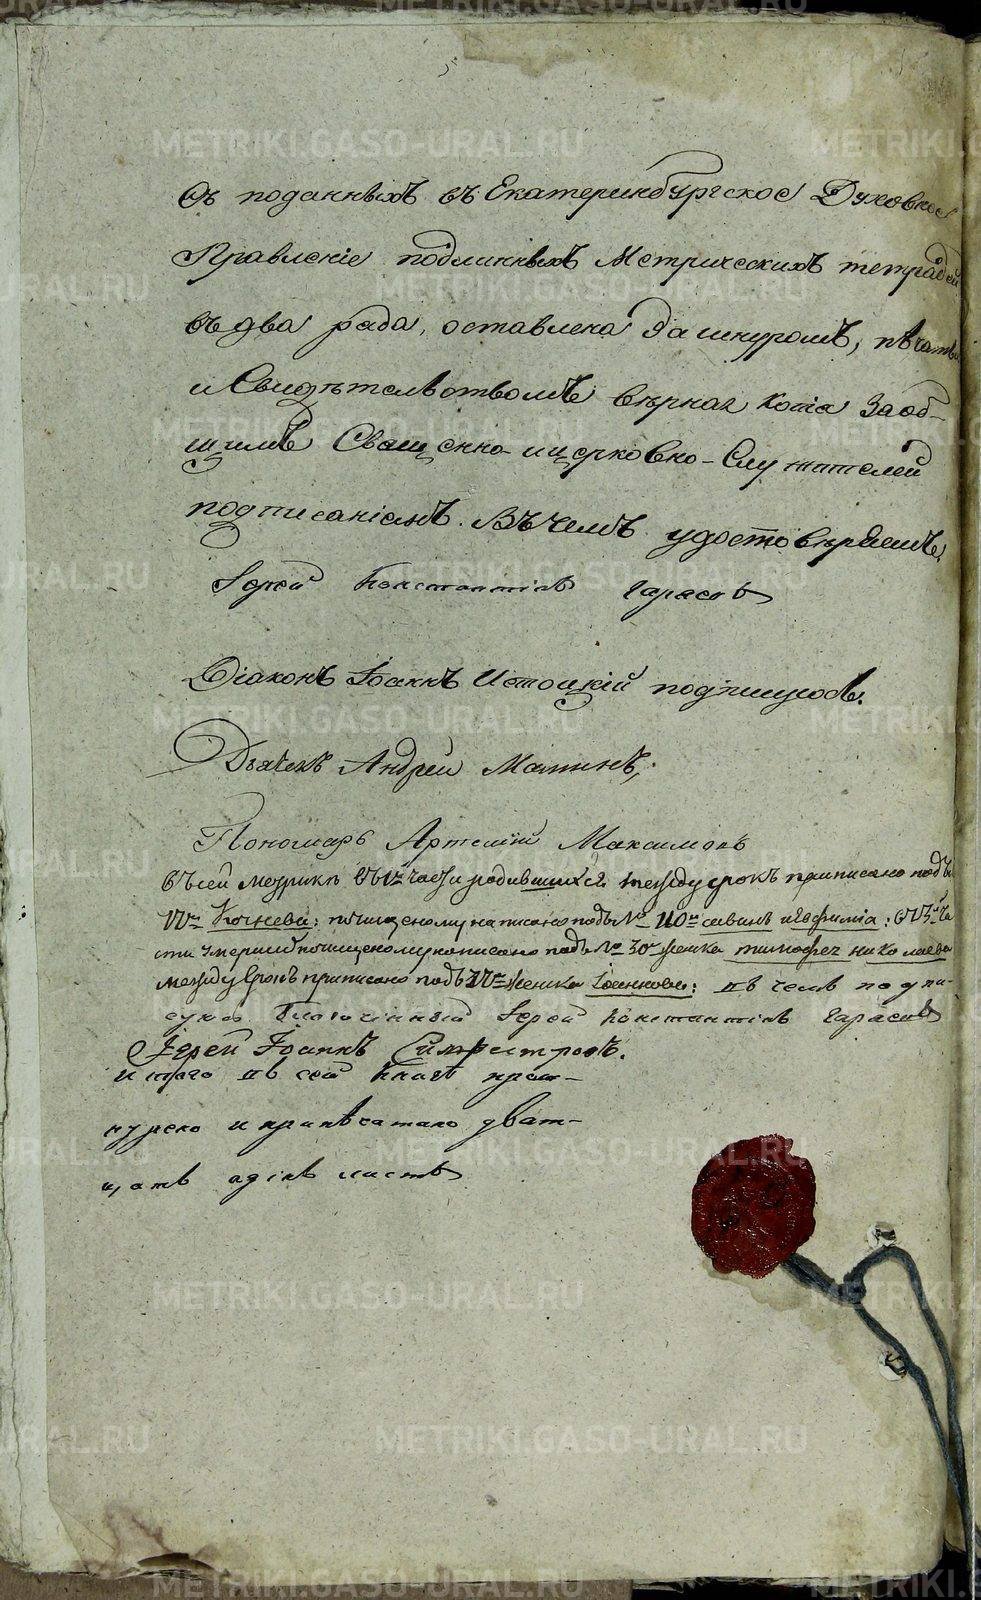 Съ поданныхъ въ Екатеринбургское Духовное
Правленіе подлинныхъ Метрическихъ тетрадей
въ два ряда, оставлена за шнуромъ, печатью
и Свидѣтельствомъ вѣрная копія за об-
щимъ Священно- и церковно-служителей
подписаніемъ. Въ чемъ удостовѣряемъ.
Іерей Константинъ
Діаконъ Іоаннъ Истоцкій подпишуюсь.
Дьячекъ Андрей Маминъ,
Пономарь Артемій Максимовъ
въ сей метрикѣ въ части родившихся между строкъ приписано подъ
почищеному написано подъ № 10м : в
сти умерших по чищеному написано подъ № 30м Николаева
между строкъ приписано подъ : въ чемъ подпи-
суюсь Благочинный Іерей Константинъ
Іерей Іоаннъ Сильвестровъ.
итого въ сей книгѣ прош-
нурено и припечатано дват-
цать одінъ листъ
METRIKI.GASO-URAL.RU